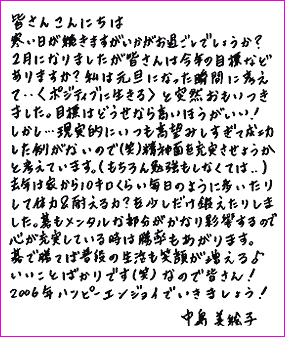 皆さんこんにちは
寒い日が続きますがいかがお過ごしでしょうか?
2月になりましたが皆さんは今年の目標など
ありますか? 私は元旦になった瞬間に考え
て・・〈ポジティブに生きる〉と突然おもいつき
ました。目標はどうせなら高いほうがいい!
しかし…現実的にいつも高望みしすぎて成功
した例がないので(笑)精神面を充実させようか
と考えています。(もちろん勉強もしなくては‥)
去年は家から10キロくらい毎日のように歩いたり
して体力&耐える力?を少しだけ鍛えたりしま
した。碁もメンタルな部分がかなり影響するので
心が充実している時は勝率もあがります。
碁で勝てば普段の生活も笑顔が増えるよ
いいことばかりです(笑) なので皆さん!
2006年ハッピーエンジョイでいきましょう!
中島 美絵子